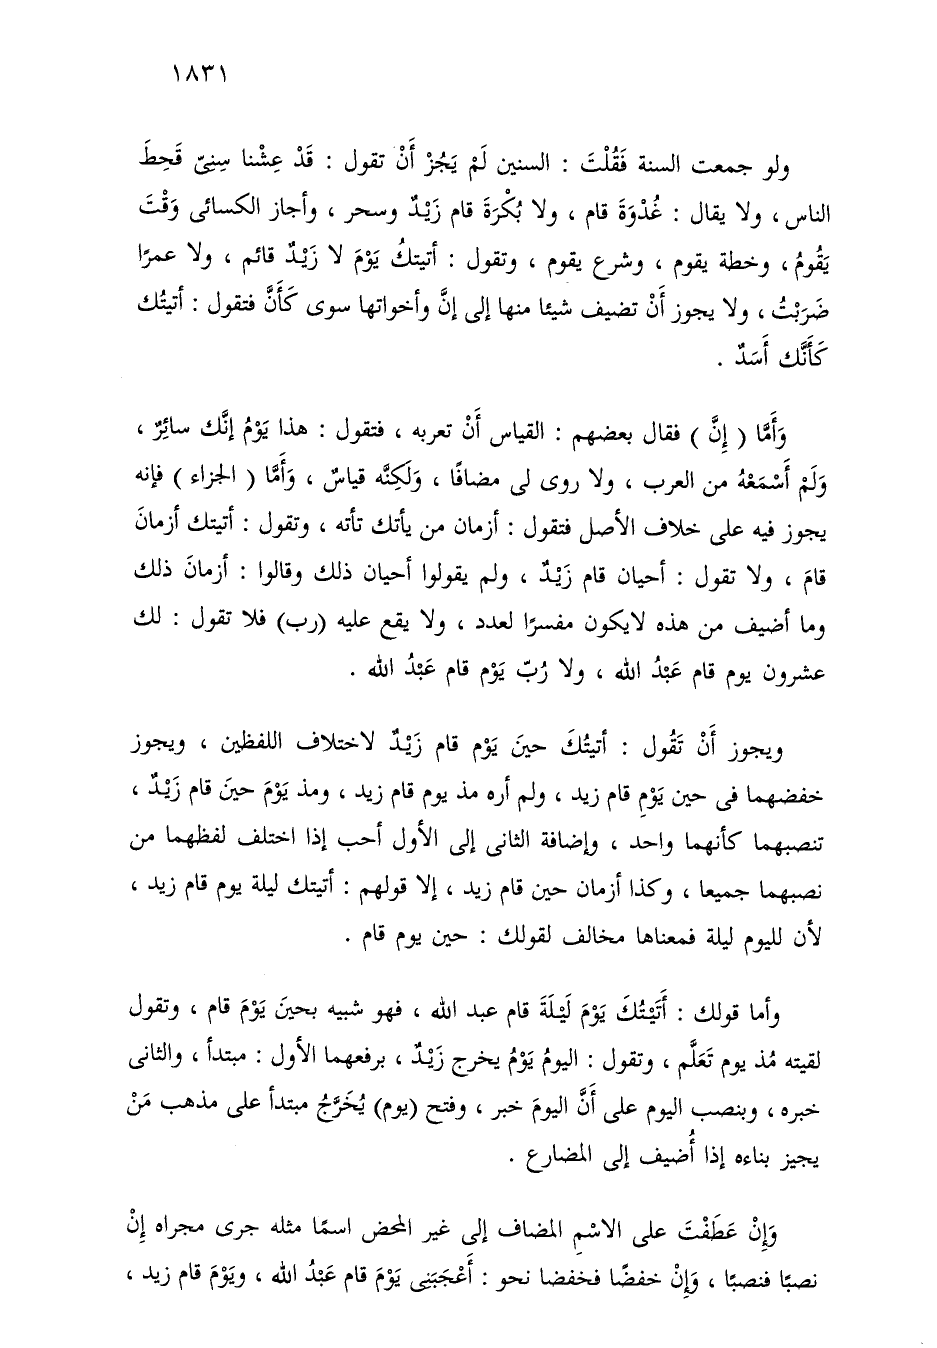 ١٨٣١
ولو جمعت السنة فَقُلْتَ : السنين لَمْ يَجُزْ أَنْ تقول : قَدْ عِشْنا سِنِىّ قَحِطَ
الناس ، ولا يقال : غُدْوَةَ قام ، ولا بُكْرَةَ قام زَيْدٌ وسحر ، وأجاز الكسائى وَقْتَ
يَقُومُ ، وخطة يقوم ، وشرع يقوم ، وتقول : أتيتكُ يَوْمَ لا زَيْدٌ قائم ، ولا عمرًا
ضَرَبْتُ ، ولا يجوز أَنْ تضيف شيئا منها إلى إنَّ وأخواتها سوى كَأَنَّ فتقول : أتيتُك
كَأَنَّك أَسَدٌ .
وَأَمَّا ( إنَّ ) فقال بعضهم : القياس أَنْ تعربه ، فتقول : هذا يَوْمُ إنَّك سائِرٌ ،
وَلَمْ أَسْمَعْهُ من العرب ، ولا روى لى مضافًا ، وَلَكِنَّه قياسٌ ، وَأَمَّا ( الجزاء ) فإنه
يجوز فيه على خلاف الأصل فتقول : أزمان من يأتك تأته ، وتقول : أتيتك أزمانَ
قامَ ، ولا تقول : أحيان قام زَيْدٌ ، ولم يقولوا أحيان ذلك وقالوا : أزمانَ ذلك
وما أضيف من هذه لايكون مفسرًا لعدد ، ولا يقع عليه (رب) فلا تقول : لك
عشرون يوم قام عَبْدُ الله ، ولا رُبّ يَوْم قام عَبْدُ الله .
ويجوز أَنْ تَقُول : أتيتُكَ حينَ يَوْم قام زَيْدٌ لاختلاف اللفظين ، ويجوز
خفضهما فى حين يَوْمِ قام زيد ، ولم أره مذ يوم قام زيد ، ومذ يَوْمَ حينَ قام زَيْدٌ ،
تنصبهما كأنهما واحد ، وإضافة الثانى إلى الأول أحب إذا اختلف لفظهما من
نصبهما جميعا ، وكذا أزمان حين قام زيد ، إلا قولهم : أتيتك ليلة يوم قام زيد ،
لأن لليوم ليلة فمعناها مخالف لقولك : حين يوم قام .
وأما قولك : أَتَيْتُكَ يَوْمَ لَيْلَةَ قام عبد الله ، فهو شبيه بحينَ يَوْمَ قام ، وتقول
لقيته مُذ يوم تَعَلَّم ، وتقول : اليومُ يَوْمُ يخرج زَيْدٌ ، برفعهما الأول : مبتدأ ، والثانى
خبره ، وبنصب اليوم على أَنَّ اليومَ خبر ، وفتح (يوم) يُخَرَّجُ مبتدأ على مذهب مَنْ
يجيز بناءه إذا أُضيف إلى المضارع .
وَإِنْ عَطَفْتَ على الاسْمِ المضاف إلى غير المحض اسمًا مثله جرى مجراه إنْ
نصبًا فنصبًا ، وَإِنْ خفضًا فخفضا نحو : أَعْجَبَنِى يَوْمَ قام عَبْدُ الله ، ويَوْمَ قام زيد ،